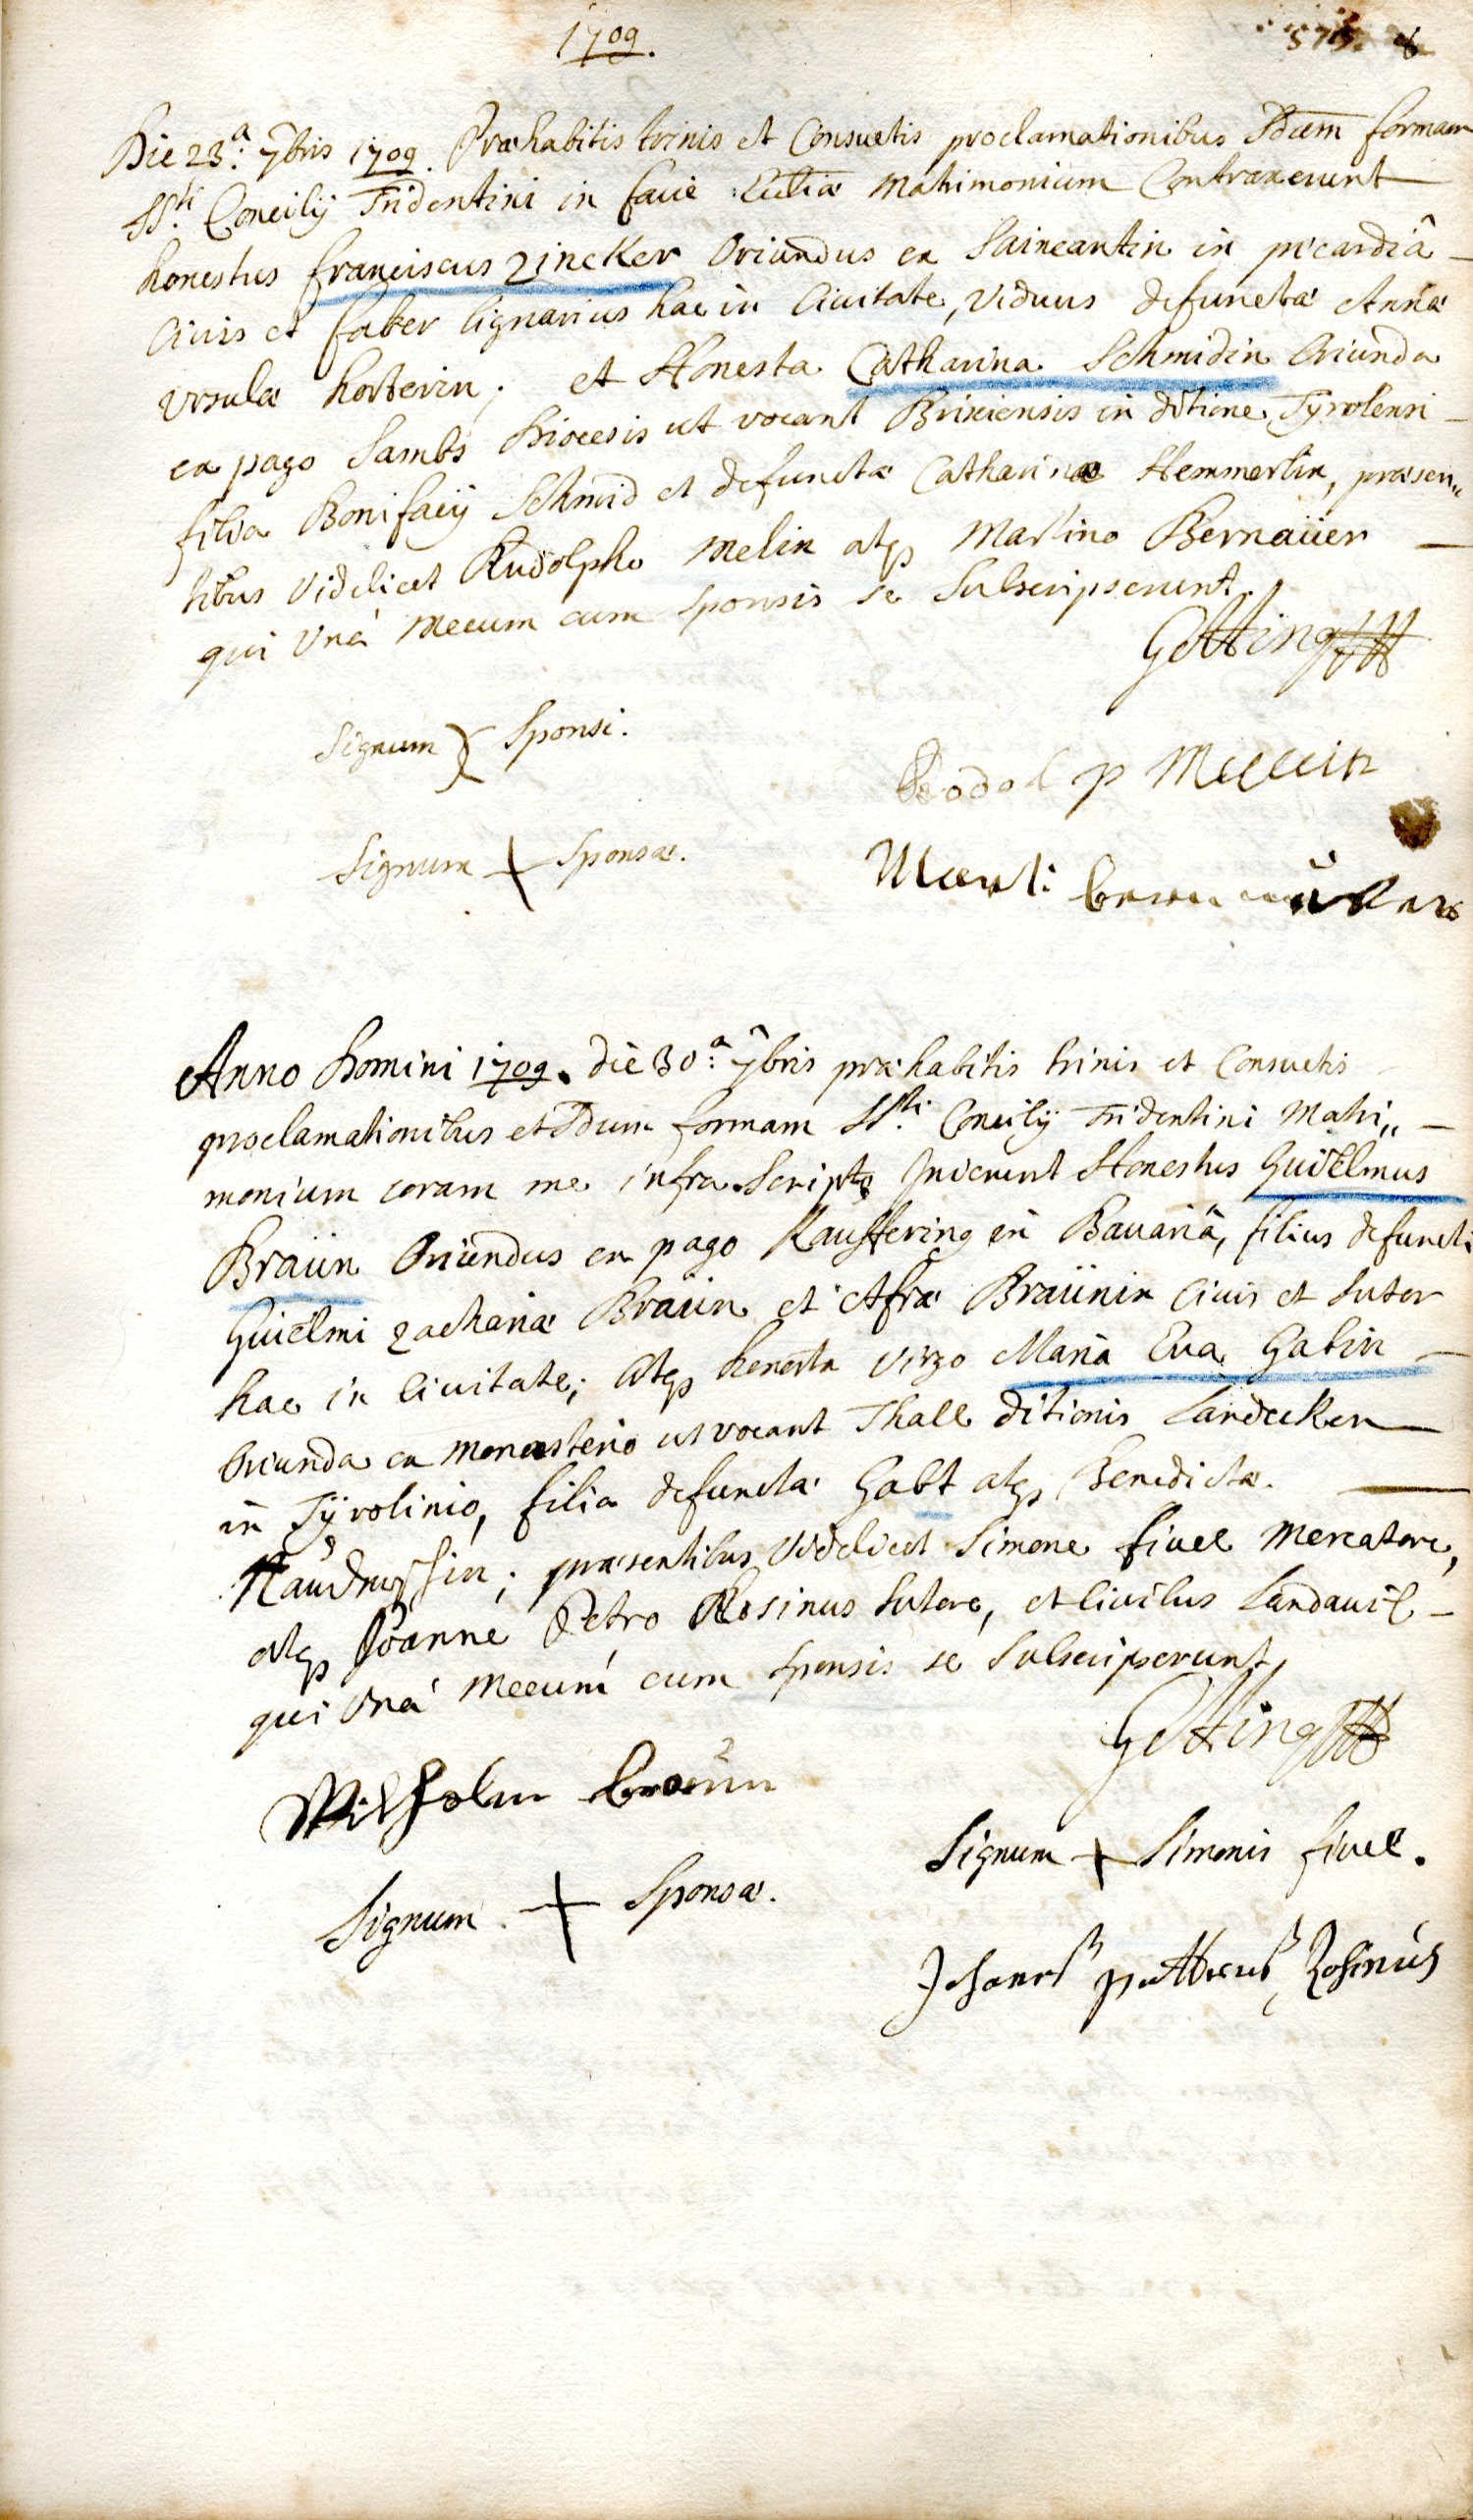 1709.
Die 23.ª 7bris 1709. Præhabitis trinis et Consuetis proclamationibus 2dum formam
SS.ti Concilij Tridentini in facie Eccliæ Matrimonium Contraxerunt
honestus franciscus Zincker Oriundus ex Saincantin in picardiâ
Civis et faber lignarius hac in Civitate, Viduus defunctæ Annæ
Ursulæ horterin; et Honesta Catharina Schmidin Oriunda
ex pago Sambs Diocesis ut vocant Brixiensis in ditione Tyrolensi
filia Bonifacij Schmid et defunctæ Catharinæ Hemmerlin, præsen„
tibus Videlicet Rudolpho Melin atq Martino Bernaüer
qui Unà Mecum cum Sponsis se Subscripserunt.
Gotting
Signum Sponsi.
Rodol p Mellin
Signum + Sponsæ.
Marti
Anno Domini 1709. die 30.ª 7bris præhabitis trinis et Consuetis
proclamationibus et 2dum formam SS.ti Concilij Tridentini Matri„
monium coram me infra Scripto Inierunt Honestus Guilelmus
Braün Oriundus ex pago Kauffering in Bavariâ, filius defuncti
Guilelmi Zachariæ Braün et Afræ Braünin Civis et Sutor
hac in Civitate; Atq honesta Virgo Maria Eva Gabin
Oriunda ex Monasterio ut vocant Thall ditionis Landecker
in Tÿrolinio, filia defuncta Gabt atq Benedictæ.
Naudrussin; præsentibus Videlicet Simone fivel Mercatore,
atq Joanne Petro Rosinus Sutore, et Civibus Landavil
qui Unà Mecum cum Sponsis se Subscripserunt
Gotting
Wilhelm braün
Signum + Simonis fivel.
Signum + Sponsæ.
Johanes pettrus Rosinus